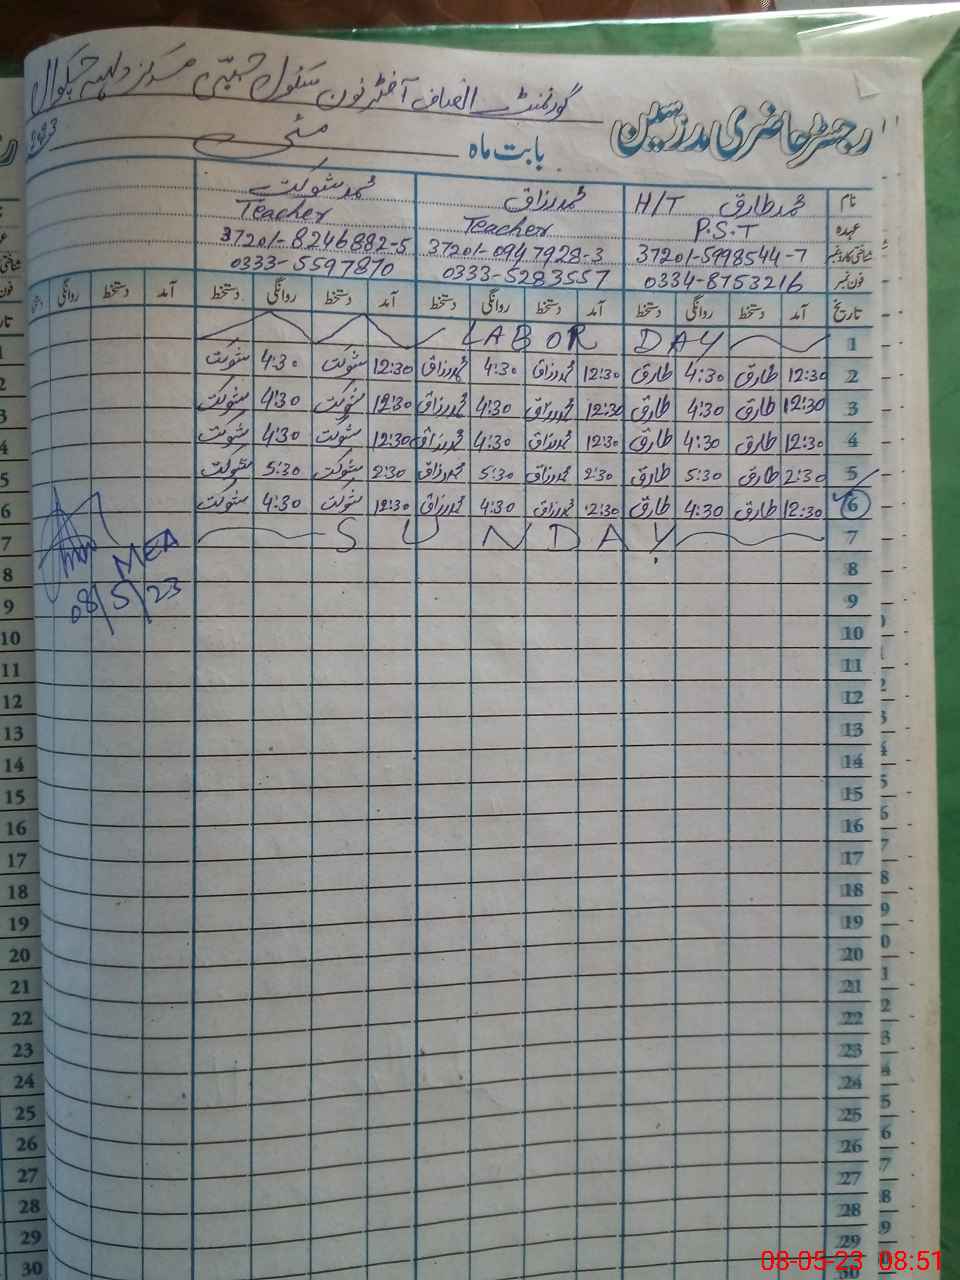 گورنمنٹ انصاف آفٹر نون سکول چبتی مرکز دلہہ چکوال
رجسٹر حاضری مدرسین
بابت ماہ مئی 2023
نام محمد طارق H/T محمد رزاق محمد شوکت
عہدہ P.S.T Teacher Teacher
شناختی کارڈ نمبر 37201-5998544-7 37201-0947928-3 37201-8246882-5
فون نمبر 0334-8753216 0333-5283557 0333-5597870
تاریخ آمد دستخط روانگی دستخط آمد دستخط روانگی دستخط آمد دستخط روانگی دستخط آمد دستخط روانگی
1 LABOR DAY
2 12:30 طارق 4:30 طارق 12:30 محمد رزاق 4:30 محمد رزاق 12:30 شوکت 4:30 شوکت
3 12:30 طارق 4:30 طارق 12:30 محمد رزاق 4:30 محمد رزاق 12:30 شوکت 4:30 شوکت
4 12:30 طارق 4:30 طارق 12:30 محمد رزاق 4:30 محمد رزاق 12:30 شوکت 4:30 شوکت
5 2:30 طارق 5:30 طارق 2:30 محمد رزاق 5:30 محمد رزاق 2:30 شوکت 5:30 شوکت
6 12:30 طارق 4:30 طارق 12:30 محمد رزاق 4:30 محمد رزاق 12:30 شوکت 4:30 شوکت
7 SUNDAY
MEA
08/5/23
8
9
10
11
12
13
14
15
16
17
18
19
20
21
22
23
24
25
26
27
28
29
30
08-05-23 08:51